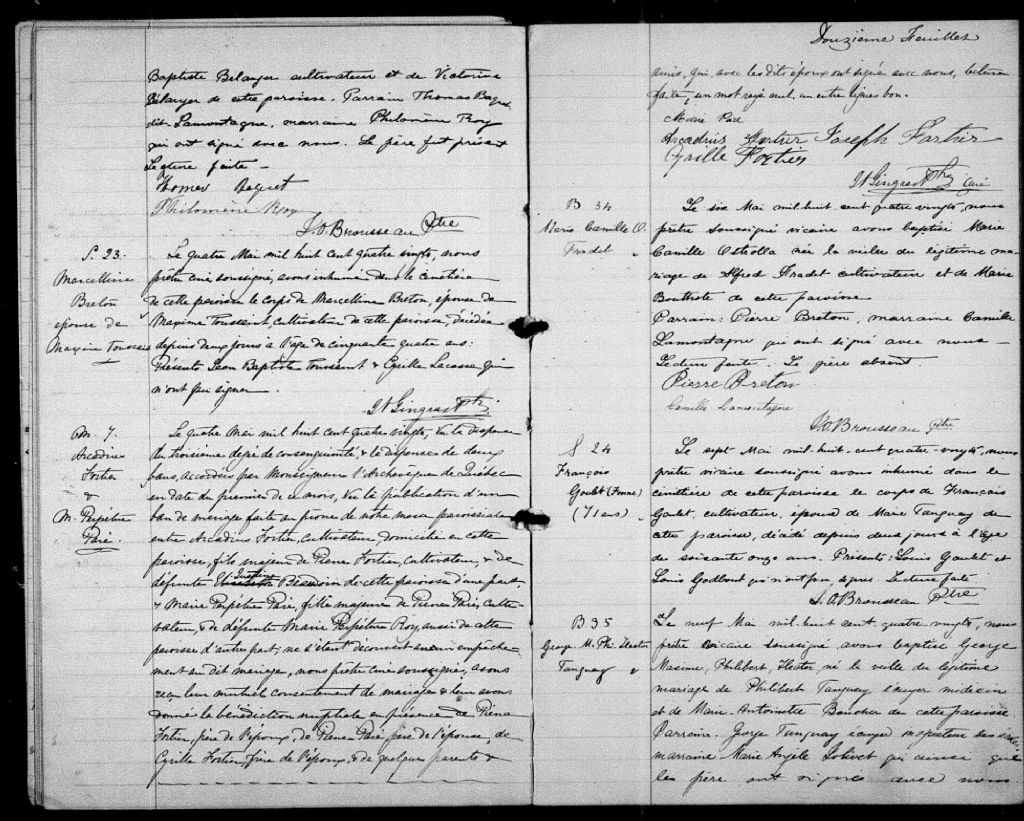 Baptiste Belanger cultivateur et de Victorine
Belanger de cette paroisse. Parrain Thomas Baquet
dit Lamontagne, marraine Philomène Roy
qui ont signé avec nous. Le père fut présent
Lecture faite —
Thomas Baquet
Philomène Roy
J.O. Brousseau Ptre
S. 23.
Marcelline
Breton
epouse de
Maxime Toussaint
Le quatre Mai mil huit cent quatre vingts, nous
prêtre curé soussigné, avons inhumé dans le cimetière
de cette paroisse le corps de Marcelline Breton, épouse de
Maxime Toussaint, cultivateur de cette paroisse, décédée
depuis deux jours à l'âge de cinquante quatre ans:
Présents Jean Baptiste Toussaint & Cyrille Lacasse qui
n'ont pu signer.
Gingras Ptr
M. 7.
Arcadius
Fortier
&
M. Perpétue
Paré.
Le quatre Mai mil huit cent quatre vingts, Vu la dispense
du troisième degré de consanguinité & la dispense de deux
bans, accordées par Monseigneur l'Archevêque de Québec
en date du premier de ce mois, Vu la publication d'un
ban de mariage faite au prône de notre messe paroissiale
entre Arcadius Fortier, cultivateur, domicilié en cette
paroisse, fils majeur de Pierre Fortier, cultivateur, & de
défunte Beaudoin de cette paroisse d'une part,
& Marie Perpétue Paré, fille majeure de Pierre Paré, culti-
vateur, & de défunte Marie Perpétue Roy, aussi de cette
paroisse d'autre part; ne s'étant découvert aucun empêche-
ment au dit mariage, nous prêtre curé soussigné, avons
reçu leur mutuel consentement de mariage & leur avons
donné la bénédiction nuptiale en présence de Pierre
Fortier, père de l'époux, de Pierre Paré père de l'épouse, de
Cyrille Fortier, frère de l'époux, & de quelques parents &
Douzième Feuillet
amis, qui, avec les dits époux ont signé avec nous, lecture
faite, un mot rayé nul, un entre lignes bon.
Marie Paré
Arcadius Fortier Joseph Fortier
Cyrille Fortier
Gingras Ptr Curé
B 34
Marie Camille O.
Fradet
Le six Mai mil-huit-cent quatre vingts, nous
prêtre soussigné vicaire avons baptisé Marie
Camille née la veille du légitime ma-
riage de Alfred Fradet cultivateur et de Marie
de cette paroisse
Parrain: Pierre Breton, marraine Camille
Lamontagne qui ont signé avec nous —
Lecture faite. Le père absent.
Pierre Breton
Camille Lamontagne
J.O. Brousseau Ptre
S 24
François
Goulet
(71 ans)
Le sept Mai mil-huit-cent-quatre-vingts, nous
prêtre vicaire soussigné avons inhumé dans le
cimetière de cette paroisse le corps de François
Goulet, cultivateur, époux de Marie Tanguay de
cette paroisse, décédé depuis deux jours à l'âge
de soixante onze ans. Présents: Louis Goulet et
Louis Godbout qui n'ont pu signer. Lecture faite
J.O. Brousseau Ptre
B 35
George M. Phi. Hector
Tanguay
Le neuf Mai mil-huit-cent quatre vingts, nous
prêtre vicaire soussigné avons baptisé George
Maxime, Philibert, Hector, né la veille du légitime
mariage de Philibert Tanguay écuyer médecin
et de Marie Antoinette Boucher de cette paroisse.
Parrain. George Tanguay écuyer inspecteur des
marraine Marie Angèle qui ainsi que
les père ont signés avec nous